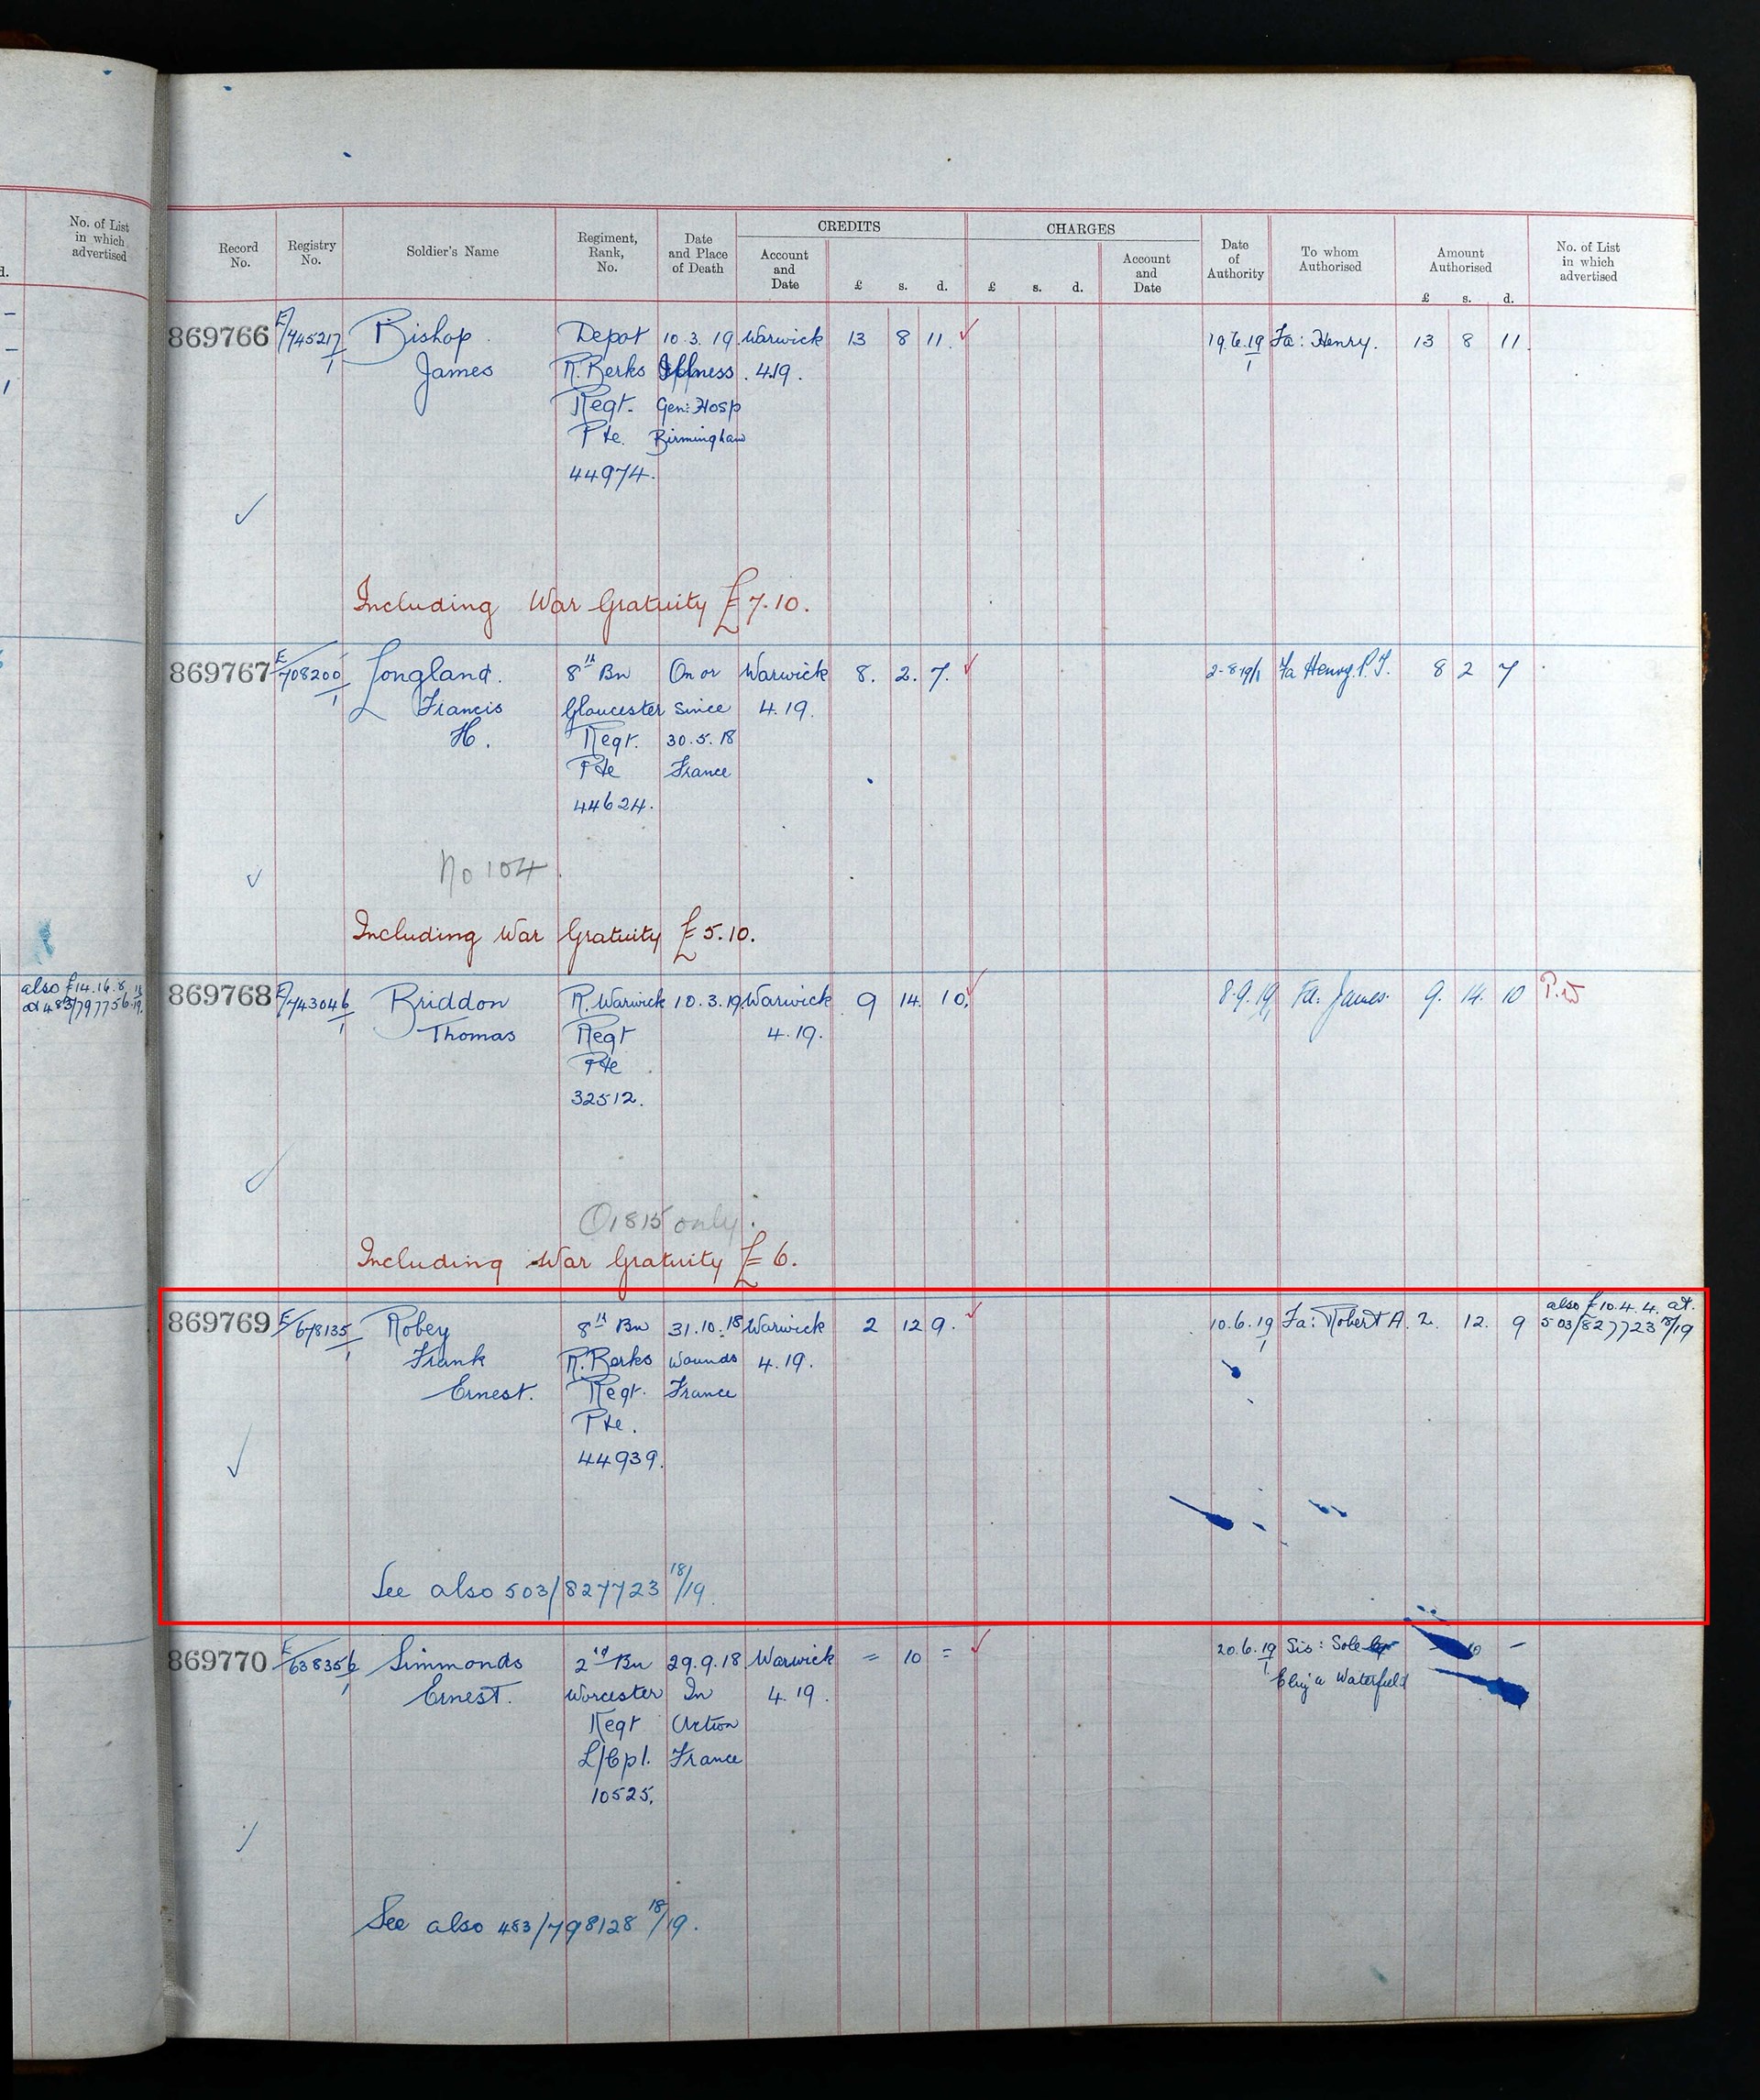 No. of List
in which
advertised
d.
also £14.16.8
Record
No.
Registry
No.
Soldier's Name
Regiment,
Rank,
No.
Date
and Place
of Death
CREDITS
Account
and
Date
£ s. d.
CHARGES
£ s. d.
Account
and
Date
Date
of
Authority
To whom
Authorised
Amount
Authorised
£ s. d.
No. of List
in which
advertised
869766 E/745217/1 Bishop Depot 10.3.19 Warwick 13 8 11 19.6.19/1 Fa: Henry. 13 8 11
James R. Berks Illness 4.19.
Regt. Gen: Hosp
Pte. Birmingham
44974.
Including War Gratuity £7.10.
869767 E/708200/1 Longland. 8th Bn On or Warwick 8. 2. 7. 2-8-19/1 Fa Henry. P. J. 8 2 7
Francis Gloucester since 4.19.
H. Regt. 30.5.18
Pte France
44624.
No 104
Including War Gratuity £5.10.
869768 E/743046/1 Briddon R. Warwick 10.3.19. Warwick 9 14. 10. 8.9.19/1 Fa: James. 9. 14. 10
Thomas Regt 4.19.
Pte
32512.
01815 only.
Including War Gratuity £6.
869769 E/678135/1 Robey 8th Bn 31.10.18 Warwick 2 12 9. 10.6.19/1 Fa: Robert A. 2. 12. 9 also £10.4.4. at.
503/827723 18/19
Frank R. Berks Wounds 4.19.
Ernest. Regt. France
Pte.
44939.
See also 503/827723 18/19.
869770 E/638356/1 Simmonds 2nd Bn 29.9.18 Warwick = 10 = 20.6.19/1 Sis: Sole – 10 –
Ernest. Worcester In 4.19. Eliz'a Waterfield
Regt Action
L/Cpl. France
10525.
See also 483/798128 18/19.